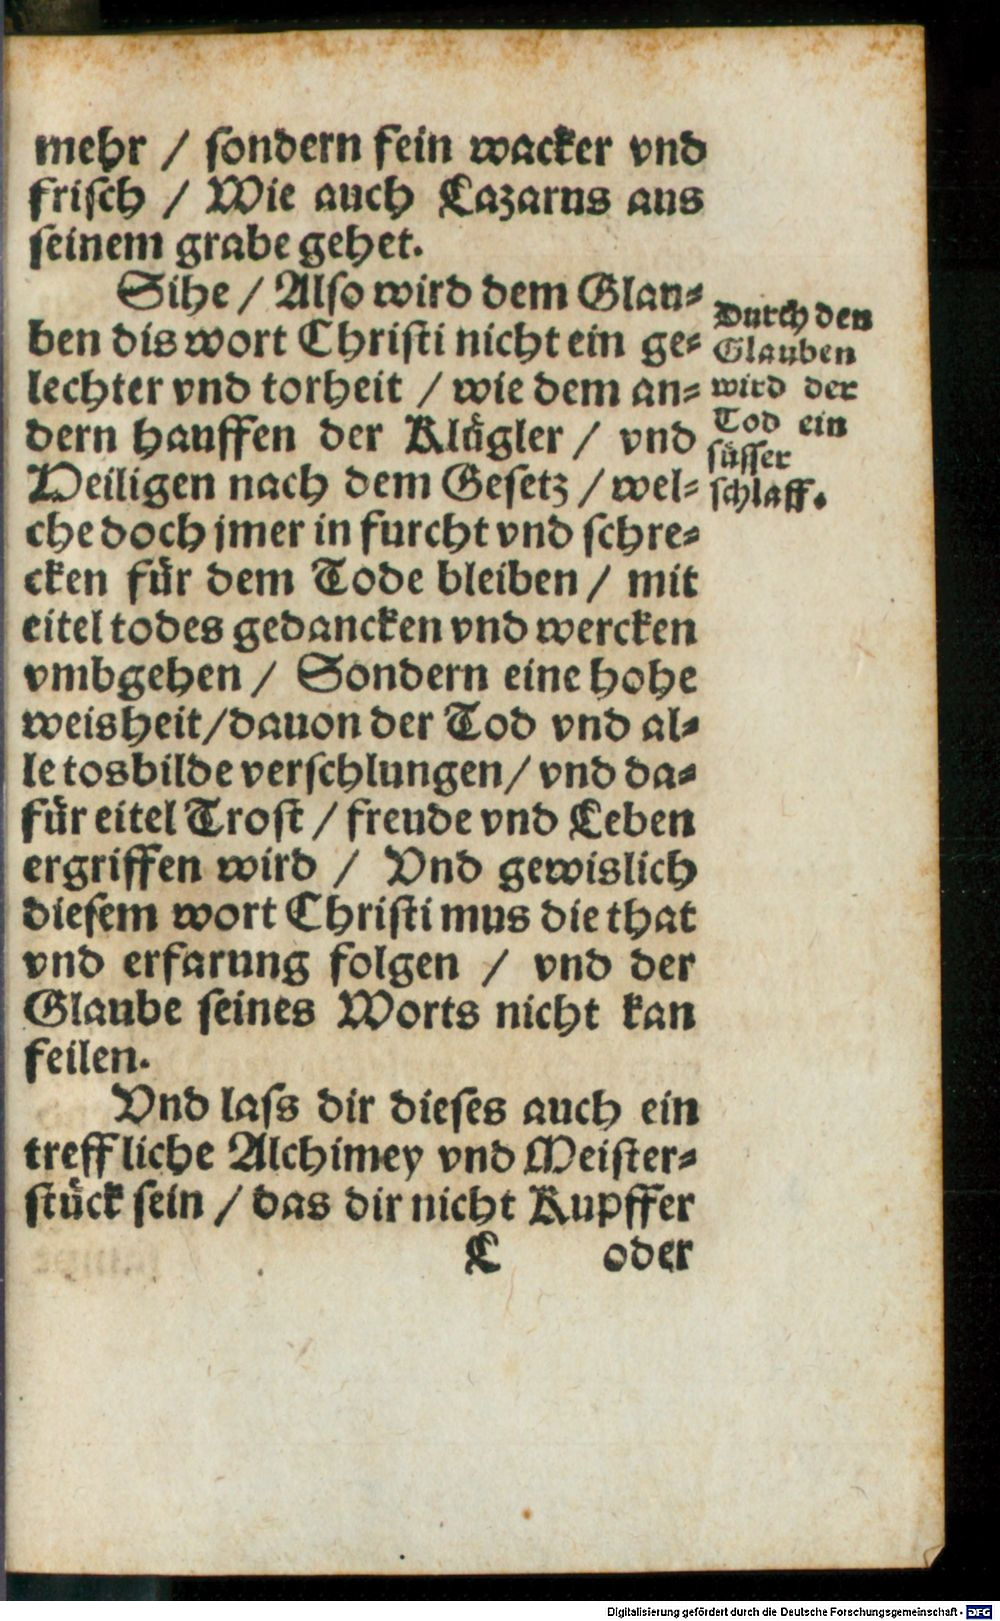 mehr / sondern fein wacker vnd
frisch / Wie auch Lazarus aus
seinem grabe gehet.
Sihe / Also wird dem Glau⸗
ben dis wort Christi nicht ein ge⸗
lechter vnd torheit / wie dem an⸗
dern hauffen der Klügler / vnd
Heiligen nach dem Gesetz / wel⸗
che doch jmer in furcht vnd schre⸗
cken für dem Tode bleiben / mit
eitel todes gedancken vnd wercken
vmbgehen / Sondern eine hohe
weisheit/dauon der Tod vnd al⸗
le tosbilde verschlungen/ vnd da⸗
für eitel Trost / freude vnd Leben
ergriffen wird / Vnd gewislich
diesem wort Christi mus die that
vnd erfarung folgen / vnd der
Glaube seines Worts nicht kan
feilen.
Vnd lass dir dieses auch ein
treffliche Alchimey vnd Meister⸗
stück sein / das dir nicht Kupffer
C oder
Durch den
Glauben
wird der
Tod ein
süsser
schlaff.
Digitalisierung gefördert durch die Deutsche Forschungsgemeinschaft - DFG